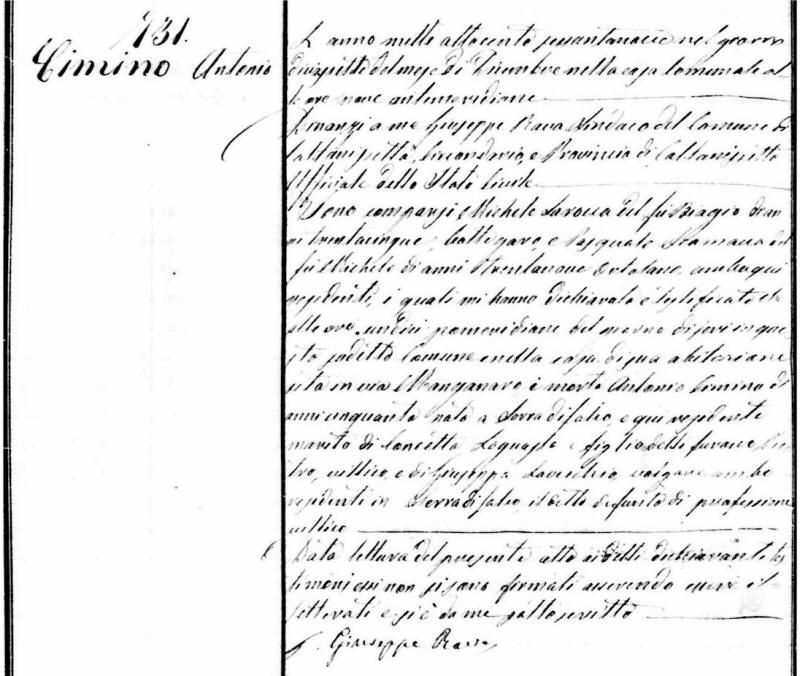 731.
Cimino Antonio
L'anno mille ottocento sessantanove nel giorno
diciassette del mese di Dicembre nella casa Comunale al
le ore nove antimeridiane
Dinanzi a me Giuseppe Sindaco del Comune di
Caltanissetta, Circondario, e Provincia di Caltanissetta
Uffiziale dello Stato Civile
Sono comparsi Michele Larocca del fu Biagio di an
ni trentacinque, e Pasquale del
fu Michele di anni trentanove Ortolano, ambi qui
residenti, i quali mi hanno dichiarato e testificato che
alle ore undici pomeridiane del giorno di jeri in que
sto sudetto Comune e nella casa di sua abitazione
sita in via Manganaro, è morto Antonio Cimino di
anni cinquanta nato a Serradifalco, e qui residente
marito di Concetta e figlio delli furono Pie
tro, villico, e di Giuseppa Lavecchia,
residenti in Serradifalco, il detto defunto di professione
villico
Data lettura del presente atto ai detti dichiaranti tes
timonj essi non si sono firmati asserendo essere il
letterati e si è da me sottoscritto
Giuseppe